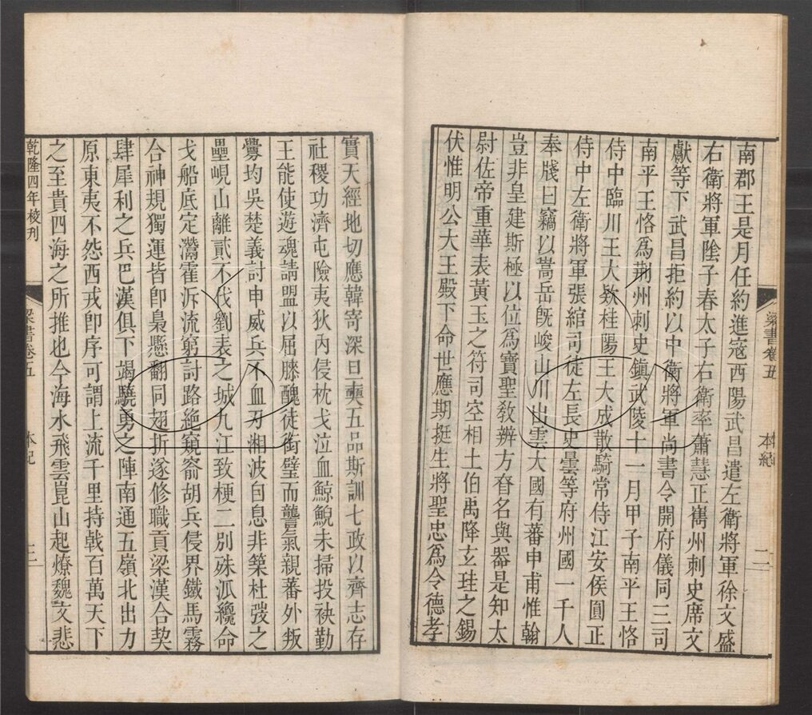 南郡王是月任約進寇西陽武昌遣左衛將軍徐文盛
右衛將軍陰子春太子右衛率蕭慧正巂州刺史席文
獻等下武昌拒約以中衛將軍尚書令開府儀同三司
南平王恪爲荆州刺史鎭武陵十一月甲子南平王恪
侍中臨川王大欵桂陽王大成散騎常侍江安侯圓正
侍中左衛將軍張綰司徒左長史曇等府州國一千人
奉牋曰竊以嵩岳旣峻山川出雲大國有蕃申甫惟翰
豈非皇建斯極以位爲寶聖敎辨方旾名與器是知太
尉佐帝重華表黃玉之符司空相土伯禹降玄珪之錫
伏惟明公大王殿下命世應期挺生將聖忠爲令德孝
梁書卷五
本紀
二
實天經地切應韓寄深旦奭五品斯訓七政以齊志存
社稷功濟屯險夷狄內侵枕戈泣血鯨鯢未掃投袂勤
王能使遊魂請盟以屈膝醜徒銜璧而讋氣親蕃外叛
釁均吳楚義討申威兵不血刃湘波自息非築杜弢之
壘峴山離貳不伐劉表之城九江致梗二別殊派纔命
戈船底定灊霍泝流窮討路絶窺窬胡兵侵界鐵馬霧
合神規獨運皆卽梟懸翻同翅折遂修職貢梁漢合契
肆犀利之兵巴漢俱下竭驍勇之陣南通五嶺北出力
原東夷不怨西戎卽序可謂上流千里持戟百萬天下
之至貴四海之所推也今海水飛雲崑山起燎魏文悲
乾隆四年校刊
梁書卷五
本紀
三